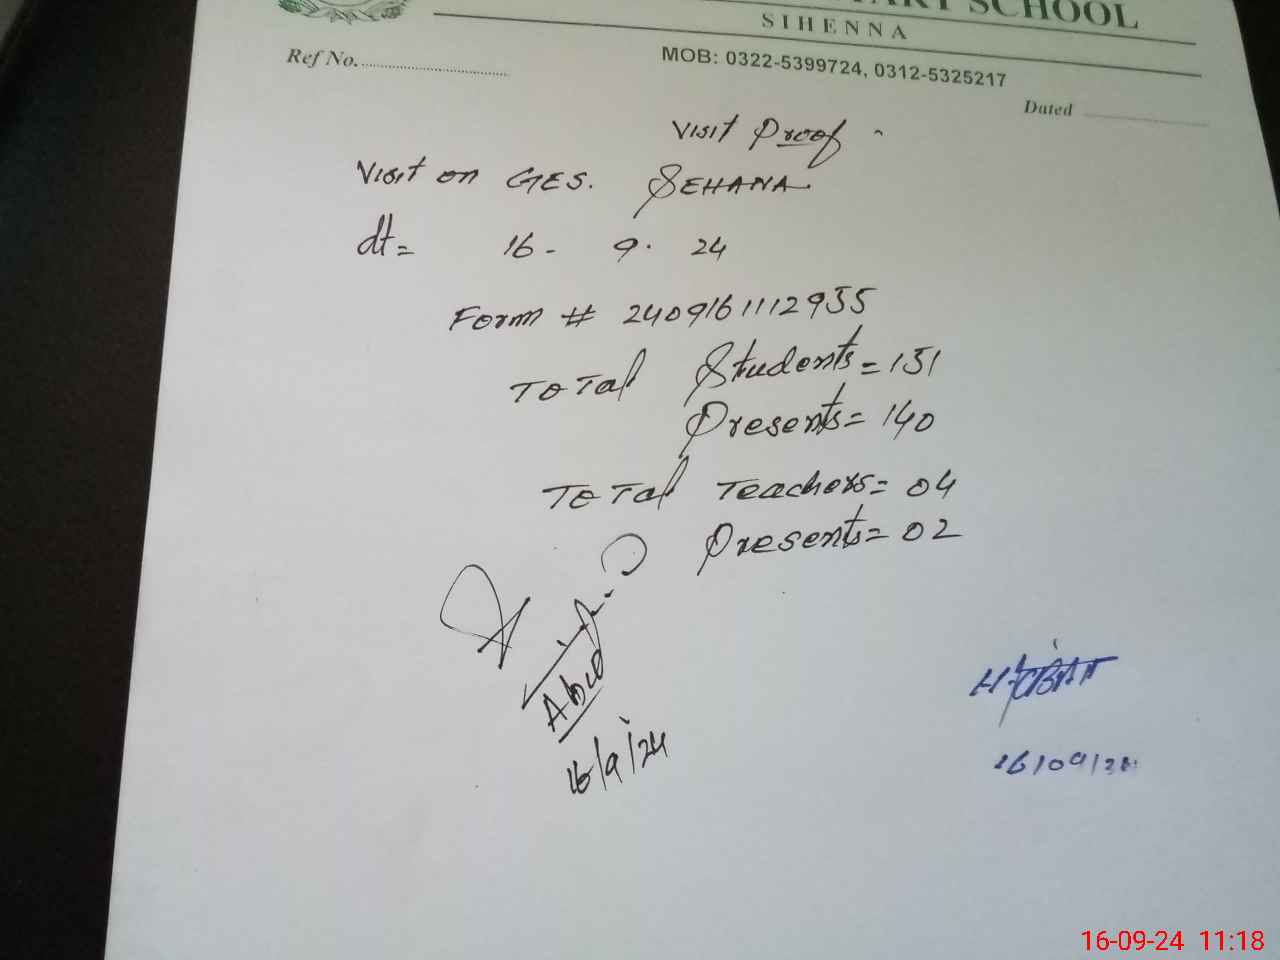 SCHOOL
SIHENNA
MOB: 0322-5399724, 0312-5325217
Ref No.
Dated
Visit Proof
Visit on GES. SEHANA
dt= 16 - 9. 24
Form # 2409161112935
Total Students = 151
Presents = 140
Total Teachers = 04
Presents = 02
16/9/24
16/09/24
16-09-24 11:18